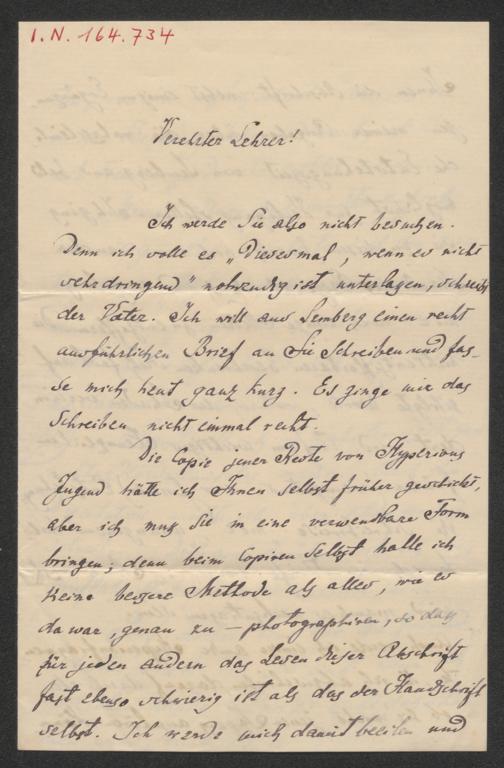 I.N. 164.734
Verehrter Lehrer!
Ich werde Sie also nicht besuchen.
Denn ich wolle es „Diesesmal, wenn es nicht
sehr dringend" notwendig ist unterlagen, schreibt
der Vater. Ich will aus Lemberg einen recht
ausführlichen Brief an Sie schreiben und fas-
se mich heut ganz kurz. Es ginge mir das
Schreiben nicht einmal recht.
Die Copie jener Reste von Hyperions
Jugend hätte ich Ihnen selbst früher geschickt,
aber ich muß Sie in eine verwendbare Form
bringen; denn beim Copiren selbst hatte ich
keine bessere Methode als alles, wie es
da war, genau zu – photographiren, so daß
für jeden andern das Lesen dieser Abschrift
fast ebenso schwierig ist als das der Handschrift
selbst. Ich werde mich damit beeilen und